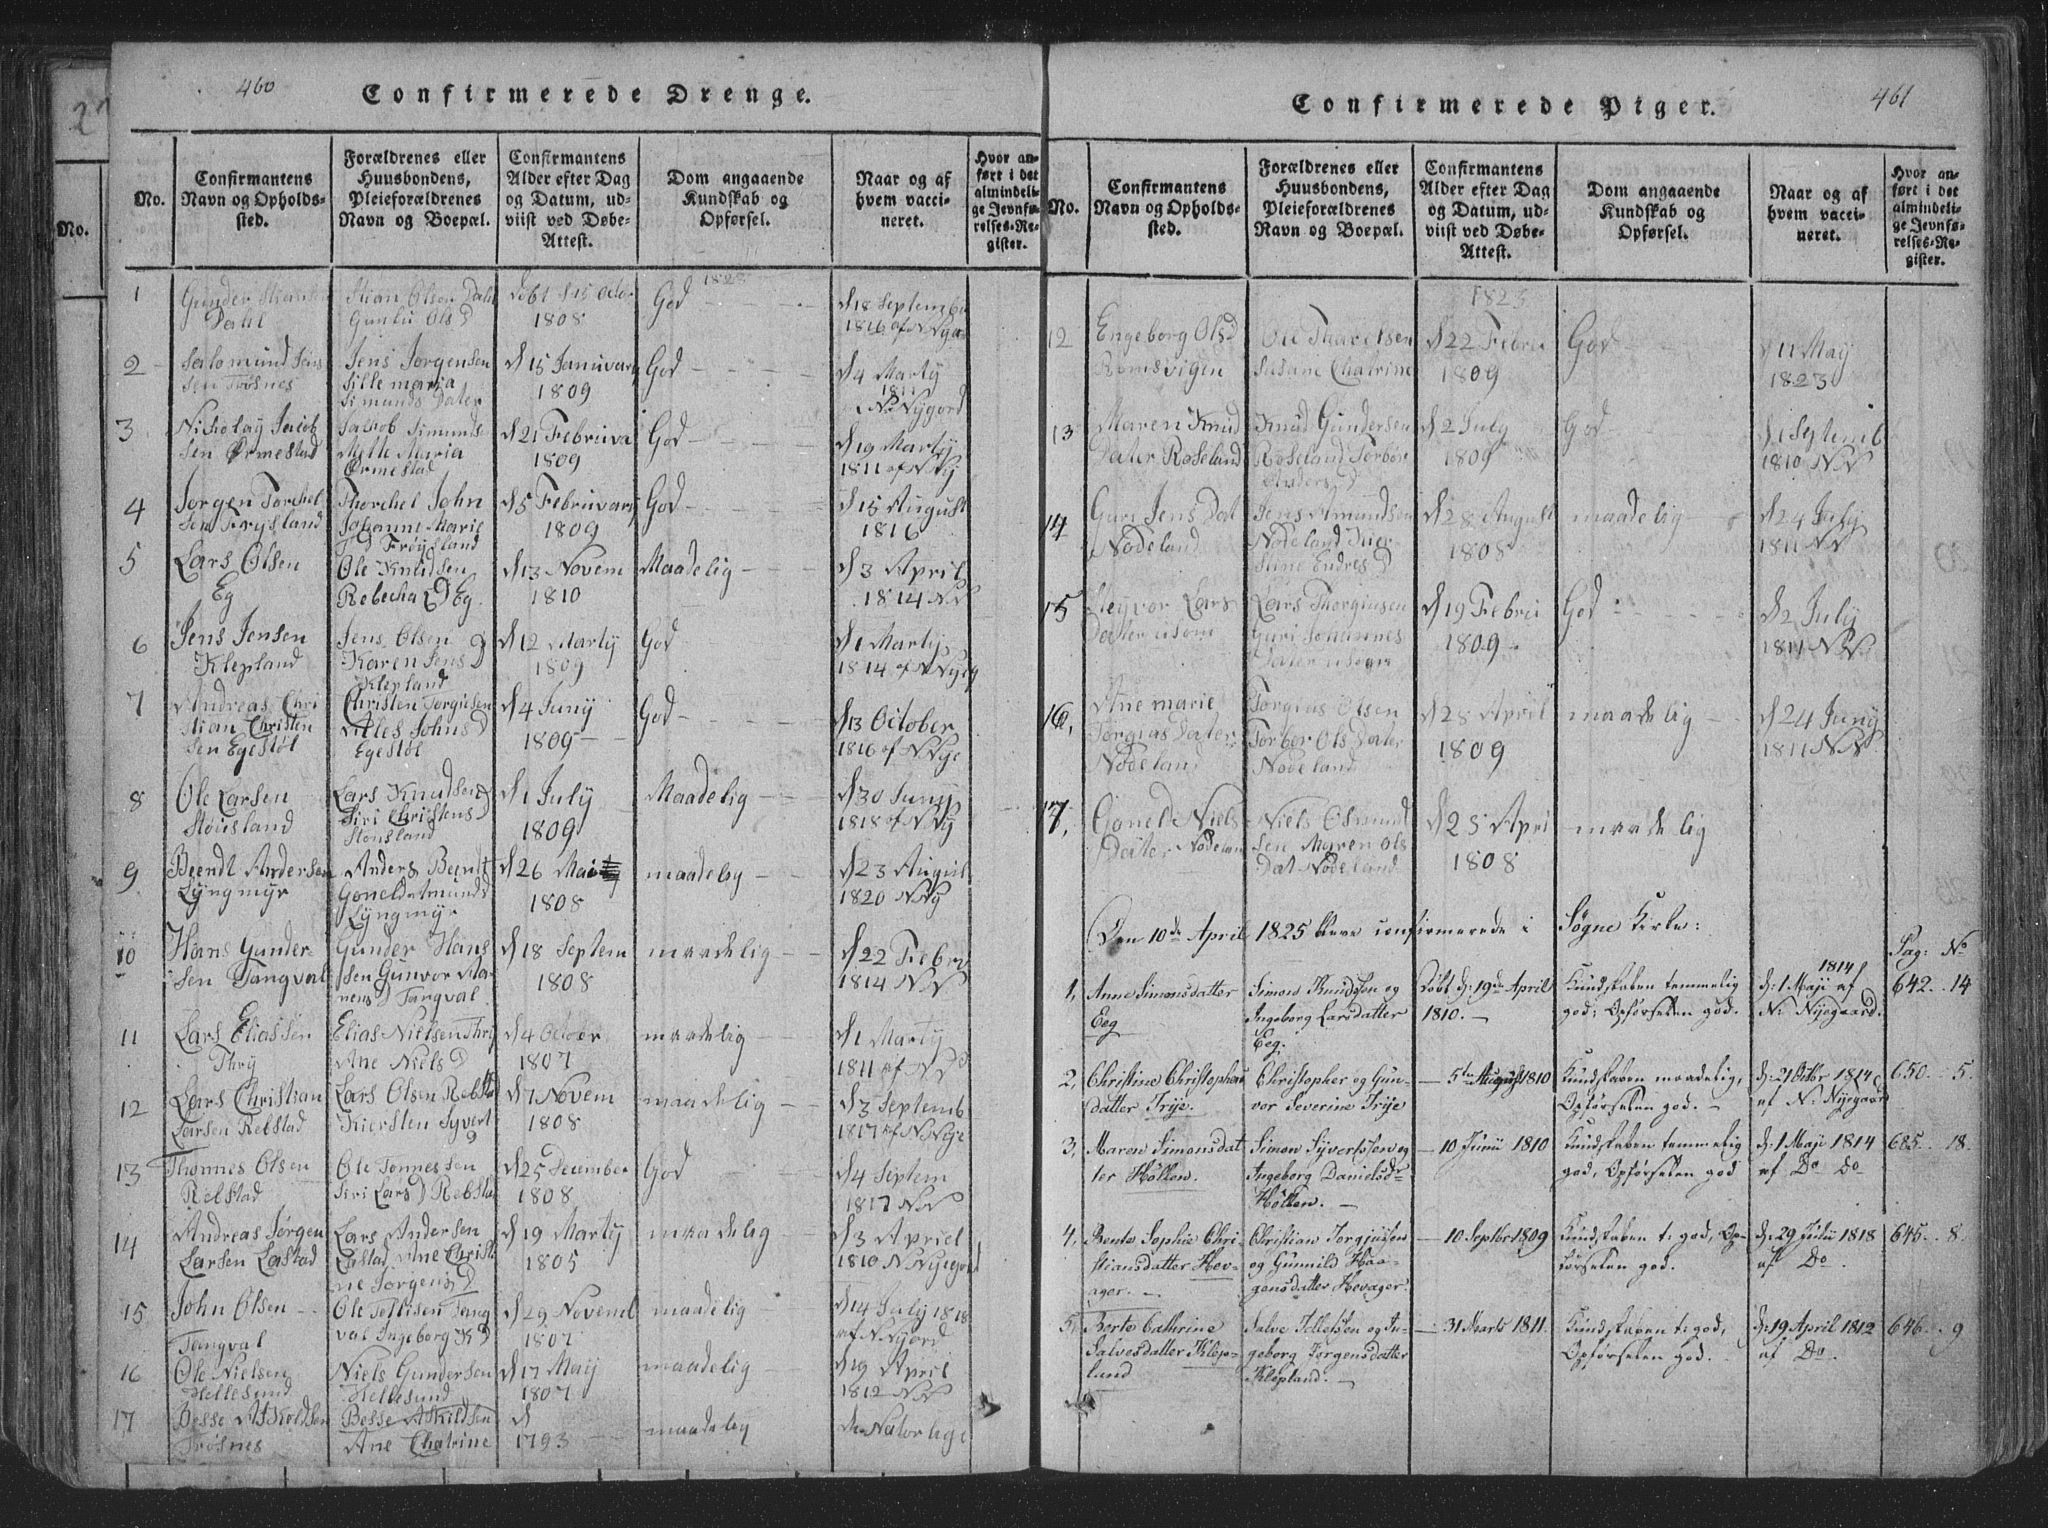 460
Confirmerede Drenge.
No.
Confirmantens
Navn og Opholds-
sted.
Forældrenes eller
Huusbondens,
Pleieforældrenes
Navn og Boepæl.
Confirmantens
Alder efter Dag
og Datum, ud-
viist ved Døbe-
Attest.
Dom angaaende
Kundskab og
Opførsel.
Naar og af
hvem vacci-
neret.
Hvor an-
ført i det
almindeli-
ge Jevnfø-
relses-Re-
gister.
No.
1
Dahl
Stian Olsen Dahl
1808
God
d 18 Septemb
2
Jens Jørgensen
Sille maria
Simunds Dater
d 15 Januvary
1809
God
d 4 Marty
3
Nicholay Jacob
sen Ørmestad
Jacob Simunds
Mette Maria
Ørmestad
d 21 Februva
1809
God
d 19 Marty
1811 af N Ny
4
Jørgen Torchel
sen Frysland
Thorchel John
Johanne Marie
d 5 Februvari
1809
God
d 15 August
1816
5
Lars Olsen
Eg
Ole Knudsen
Rebecha D Eg
d 13 Novem
1810
Maadelig
d 3 April
1814 N N
6
Jens Jensen
Klepland
Jens Olsen
Karen Jens D
Klepland
d 12 Marty
1809
God
d 1 Marty
1814 af N Nyeg
7
Andreas Chri
stian Christen
sen Egestøl
Christen Torgiusen
Alles Johns D
Egestøl
d 4 Juny
1809
God
d 13 October
1816 af N Nye
8
Ole Larsen
Stousland
Lars Knudsen
Siri Christens D
Stousland
d 1 July
1809
Maadelig
d 30 Juny
1818 af N Ny
9
Berndt Andersen
Lyngmyr
Anders Berndt
Lyngmyr
d 26 Mai
1808
maadelig
d 23 August
1820 N Ny
10
Hans Gunder-
sen Tangval
Gunder Hans
sen Gunvor Mar
nens D Tangval
d 18 Septem
1808
maadelig
d 22 Febr
1814 N N
11
Lars Eliassen
Thry
Elias Nielsen Thry
Ane Niels D
d 4 Octobr
1807
maadelig
d 1 Marty
1811 af N N
12
Lars Christian
Larsen Relstad
Lars Olsen Relsta
Kiersten Syvert
D
d 7 Novem
1808
maadelig
d 3 Septemb
1817 af N Nye
13
Thonnes Olsen
Relstad
Ole Tonnessen
Siri Lars D Relsta
d 25 December
1808
God
d 4 Septem
1817 N N
14
Andreas Jørgen
Larsen Lastad
Lars Andersen
Lastad Ane Christi
ne Jorgens D
d 19 Marty
1805
maadelig
d 3 Apriel
1810 N Nyegord
15
John Olsen
Tangval
Ole Tellisen Tang
val Ingeborg K D
d 29 Novemb
1807
maadelig
d 14 July 1818
af N Nyord
16
Ole Nielsen
Hellesund
Niels Gundersen
Hellesund
d 17 May
1807
maadelig
d 9 April
1812 N N
17
Besse Askoldsen
Trøsnes
Besse Askildsen
Ane Chatrine
d
1793
maadeleg
de Natorlige
461
Confirmerede Piger.
No.
Confirmantens
Navn og Opholds-
sted.
Forældrenes eller
Huusbondens,
Pleieforældrenes
Navn og Boepæl.
Confirmantens
Alder efter Dag
og Datum, ud-
viist ved Døbe-
Attest.
Dom angaaende
Kundskab og
Opførsel.
Naar og af
hvem vacci-
neret.
Hvor an-
ført i det
almindeli-
ge Jevnfø-
relses-Re-
gister.
1823
12
Engeborg Ols D
Romsvigen
Susane Chatrine
d 22 Febru
1809
God
d 11 May
1823
13
Maren Knud
Dater Roseland
Knud Gundersen
Roseland Torbor
Anders D
d 2 July
1809
God
d 1 Septemb
1810 N N
14
Guri Jens Dat
Nodeland
Jens Amundsen
d 28 August
1808
maadelig
d 24 July
1811 N N
15
Lars
Lars Thorgiusen
Guri Johannes
d 19 Febru
1809
God
d 2 July
1811 N N
16,
Ane marie
Torgius Dater
Nodeland
Torgius Olsen
Torber Ols Dater
Nodeland
d 28 April
1809
maadelig
d 24 Juny
1811 N N
17,
Goneld Niels
Dater Nodelan
Niels Osmund
sen Maren Ols
Dat Nodeland
d 25 Apri
1808
maadelig
Den 10de April 1825 bleve confirmerede i Søgne Kirke:
Pag: No
1,
Anne Simonsdatter
Eeg
Simon Knudsen og
Ingeborg Larsdatter
Eeg.
Døbt d: 19de April
1810.
Kundskaben temmelig
god; Opførselen god.
d: 1 Maji 1814 af
N: Nyegaard.
642. 14
2,
Christine Christophers
datter Trije.
Christopher og Gun-
vor Severine Trije
— 5te August 1810
Kundskaben maadelig,
Opførselen god. —
d: 21 Octbr 1814
af N: Nyegaard
650. 5.
3,
Maren Simonsdat
ter Hölten.
Simon Syvertssen og
Ingeborg Danielsdr
Hölten. —
— 10 Junii 1810
Kundskaben temmelig
god, Opførselen god
d: 1 Maji 1814
af Do Do
685. 18.
4,
Bente Sophie Chri
stiansdatter Hev-
ager. —
Christian Torgjusen
og Gunnild Haa-
gensdatter Hevager.
— 10 Septbr 1809
Kundskaben t: god, Op-
førselen god.
d: 29 Julii 1818
af Do.
645. 8.
5,
Berte Cathrine
Salvesdatter Klep-
land
Salve Tellefsen og In-
geborg Jørgensdatter
Klepland. —
— 31 Marts 1811.
Kundskaben t: god,
Opførselen god. —
d: 19 April 1812
af Do.
646. 9